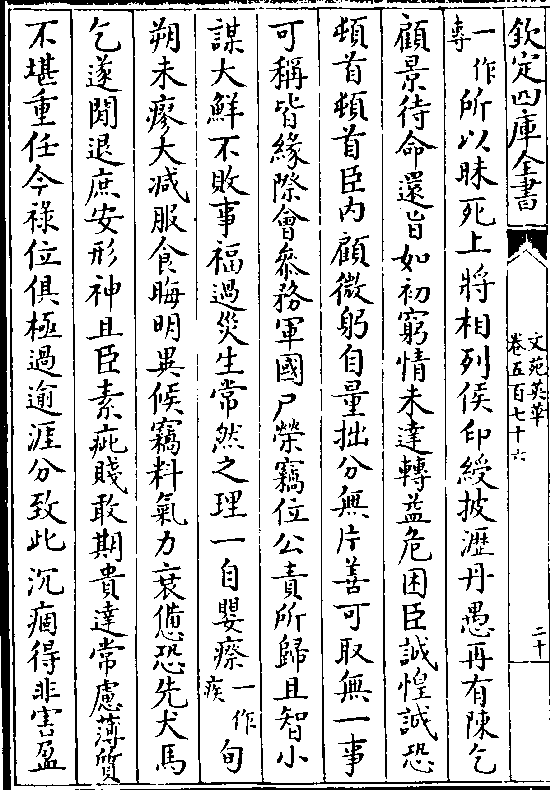 欽定四庫全書
文苑英華
卷五百七十六
二十
一作專所以昧死上將相列侯印綬披瀝丹愚再有陳乞
顧景待命還旨如初窮情未達轉益危困臣誠惶誠恐
頓首頓首臣内顧微躬自量拙分無片善可取無一事
可稱皆緣際會叅務軍國尸榮竊位公責所歸且智小
謀大鮮不敗事福過災生常然之理一自嬰瘵一作疾旬
朔未瘳大减服食晦明異候竊料氣力衰憊恐先犬馬
乞遂閒退庶安形神且臣素疵賤敢期貴達常慮薄質
不堪重任今祿位俱極過逾涯分致此沉痼得非害盈